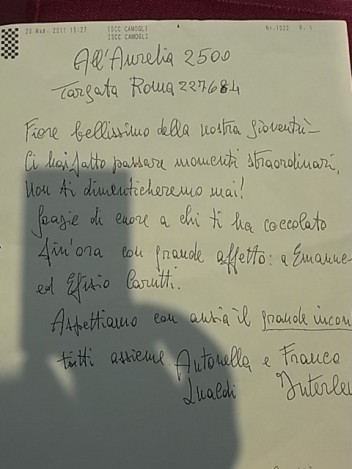 28 Mar. 2011 15:27 ISCC CAMOGLI
ISCC CAMOGLI
All'Aurelia 2500
Targata Roma 227684
Fiore bellissimo della nostra gioventù-
Ci hai fatto passare momenti straordinari,
Non ti dimenticheremo mai!
Grazie di cuore a chi ti ha coccolato
fin'ora con grande affetto: a Emanue
ed Efisio Carutti.
Aspettiamo con ansia il grande incon
tutti assieme. Antonella e Franco
Interle